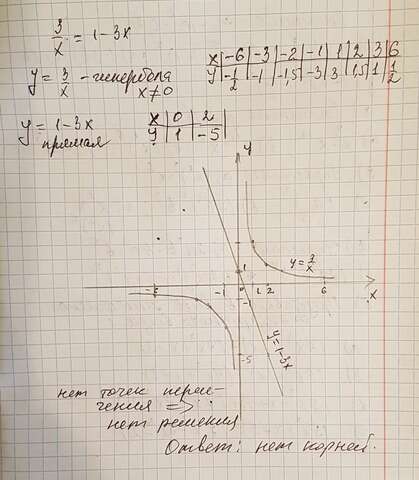 3/x = 1-3x
y = 3/x - гипербола
x≠0
x | -6 | -3 | -2 | -1 | 1 | 2 | 3 | 6
y | -1/2 | -1 | -1,5 | -3 | 3 | 1,5 | 1 | 1/2
y = 1-3x
прямая
x | 0 | 2
y | 1 | -5
y
y = 3/x
1
-1
1 2
6
x
-1
-5
y=1-3x
нет точек пересе-
чения =>
нет решения
Ответ: нет корней.